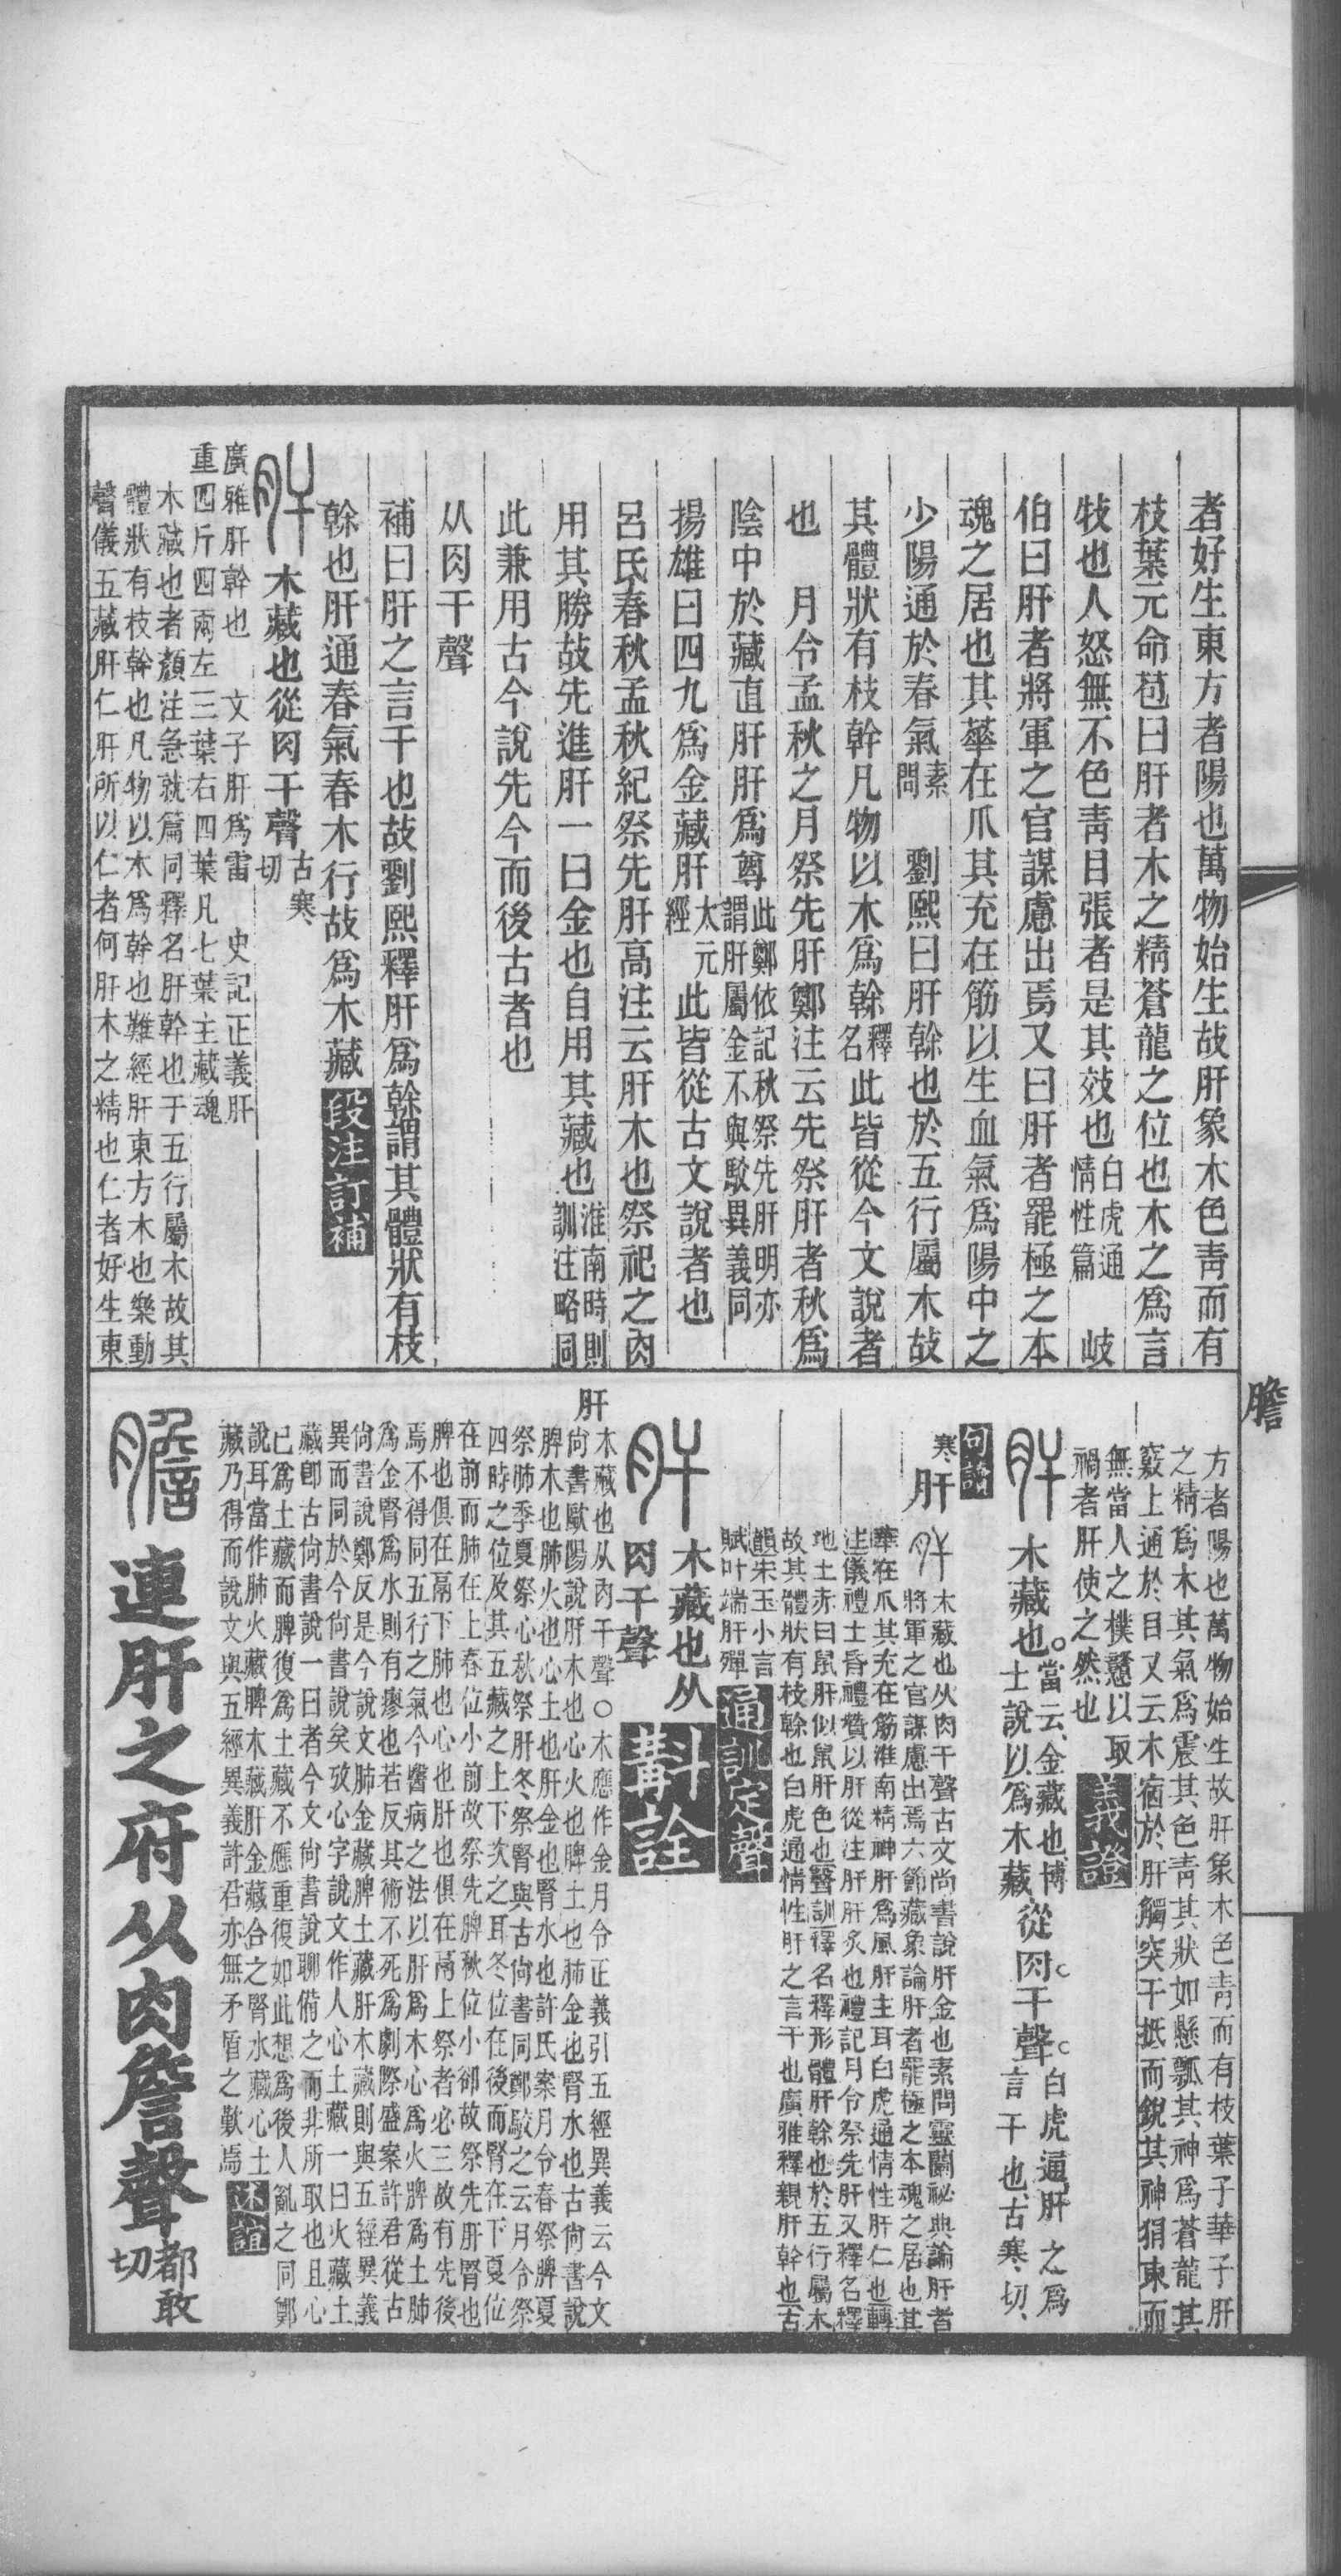 者好生東方者陽也萬物始生故肝象木色靑而有
枝葉元命苞曰肝者木之精蒼龍之位也木之爲言
牧也人怒無不色靑目張者是其效也白虎通情性篇 岐
伯曰肝者將軍之官謀慮出焉又曰肝者罷極之本
魂之居也其華在爪其充在筋以生血氣爲陽中之
少陽通於春氣素問 劉熙曰肝榦也於五行屬木故
其體狀有枝幹凡物以木爲榦釋名此皆從今文說者
也 月令孟秋之月祭先肝鄭注云先祭肝者秋爲
陰中於藏直肝肝爲尊此鄭依記秋祭先肝明亦謂肝屬金不與駮異義同
揚雄曰四九爲金藏肝太元經此皆從古文說者也
呂氏春秋孟秋紀祭先肝高注云肝木也祭祀之肉
用其勝故先進肝一曰金也自用其藏也淮南時則訓注略同
此兼用古今說先今而後古者也
从肉干聲
補曰肝之言干也故劉熙釋肝爲榦謂其體狀有枝
榦也肝通春氣春木行故爲木藏 段注訂補
肝 木藏也從肉干聲古寒切
廣雅肝幹也 文子肝爲雷 史記正義肝
重四斤四兩左三葉右四葉凡七葉主藏魂
木藏也者顏注急就篇同釋名肝幹也于五行屬木故其
體狀有枝幹也凡物以木爲幹也難經肝東方木也樂動
聲儀五藏肝仁肝所以仁者何肝木之精也仁者好生東
膽
方者陽也萬物始生故肝象木色靑而有枝葉子華子肝
之精爲木其氣爲震其色靑其狀如懸瓢其神爲蒼龍其
竅上通於目又云木宿於肝觸突干抵而銳其神狷東而
無當人之樸戇以取
禍者肝使之然也 義證
肝 木藏也當云金藏也博士說以爲木藏從肉干聲白虎通肝之爲言干也古寒切
句讀
寒 肝 肝 木藏也从肉干聲古文尙書說肝金也素問靈蘭祕典論肝者
將軍之官謀慮出焉六節藏象論肝者罷極之本魂之居也其
華在爪其充在筋淮南精神肝爲風肝主耳白虎通情性肝仁也轉
注儀禮士昏禮贊以肝從注肝肝炙也禮記月令祭先肝又釋名釋
地土赤曰鼠肝似鼠肝色也聲訓釋名釋形體肝榦也於五行屬木
故其體狀有枝榦也白虎通情性肝之言干也廣雅釋親肝幹也古
韻宋玉小言
賦叶端肝殫 通訓定聲
肝 木藏也从肉干聲 斠詮
肝 木藏也从肉干聲○木應作金月令正義引五經異義云今文
尙書歐陽說肝木也心火也脾土也肺金也腎水也古尙書說
脾木也肺火也心土也肝金也腎水也許氏案月令春祭脾夏
祭肺季夏祭心秋祭肝冬祭腎與古尙書同鄭駮之云月令祭
四時之位及其五藏之上下次之耳冬位在後而腎在下夏位
在前而肺在上春位小前故祭先脾秋位小卻故祭先肝腎也
脾也俱在鬲下肺也心也肝也俱在鬲上祭者必三故有先後
焉不得同五行之氣今醫病之法以肝爲木心爲火脾爲土肺
爲金腎爲水則有瘳也若反其術不死爲劇際盛案許君從古
尙書說鄭反是今說文肺金藏脾土藏肝木藏則與五經異義
異而同於今尙書說矣攷心字說文作人心土藏一曰火藏土
藏卽古尙書說一曰者今文尙書說聊備之而非所取也且心
已爲土藏而脾復爲土藏不應重復如此想爲後人亂之同鄭
說耳當作肺火藏脾木藏肝金藏合之腎水藏心土
藏乃得而說文與五經異義許君亦無矛盾之歎焉 述誼
膽 連肝之府从肉詹聲都敢切